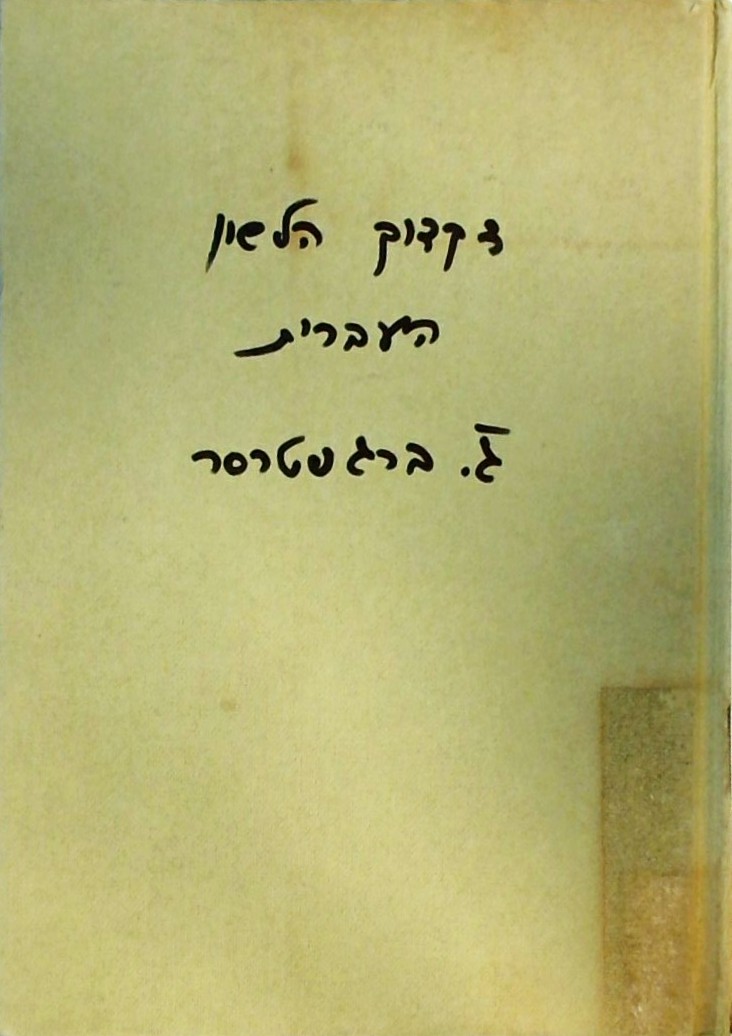 דקדוק הלשון
העברית
ג. ברגשטרסר